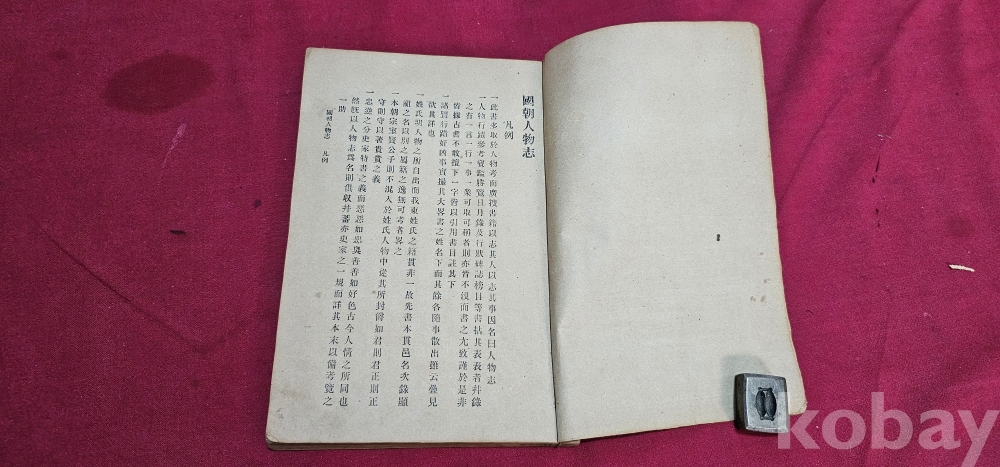 國朝人物志
凡例
一此書多取於人物考而廣搜書籍以志其人以志其事因名曰人物志
一人物行蹟參考寶鑑勝覽日月錄及行狀碑誌榜目等書拈其表表者幷錄
之有一言一行一事一業可取可稱者則亦皆不沒而書之尤致謹於是非
皆據古書不敢擅下一字皆以引用書目註其下
一諸賢行蹟好凶事實撮其大畧書之姓名下而其餘各隨事散出雖云疊見
欲其詳也
一姓氏卽人物之所自出而我東姓氏之籍貫非一故先書本貫邑名次錄顯
祖之名以別之屬籍之逸無可考者畧之
一本朝宗室賢公子則不混入於姓氏人物中從其所封爵如君則君正則正
守則守以著貴貴之義
一忠逆之分史家特書之義而惡惡如惡臭善善如好色古今人情之所同也
然旣以人物志爲名則俱收幷蓄亦史家之一規而詳其本末以備考覽之
一助
國朝人物志 凡例
kobay